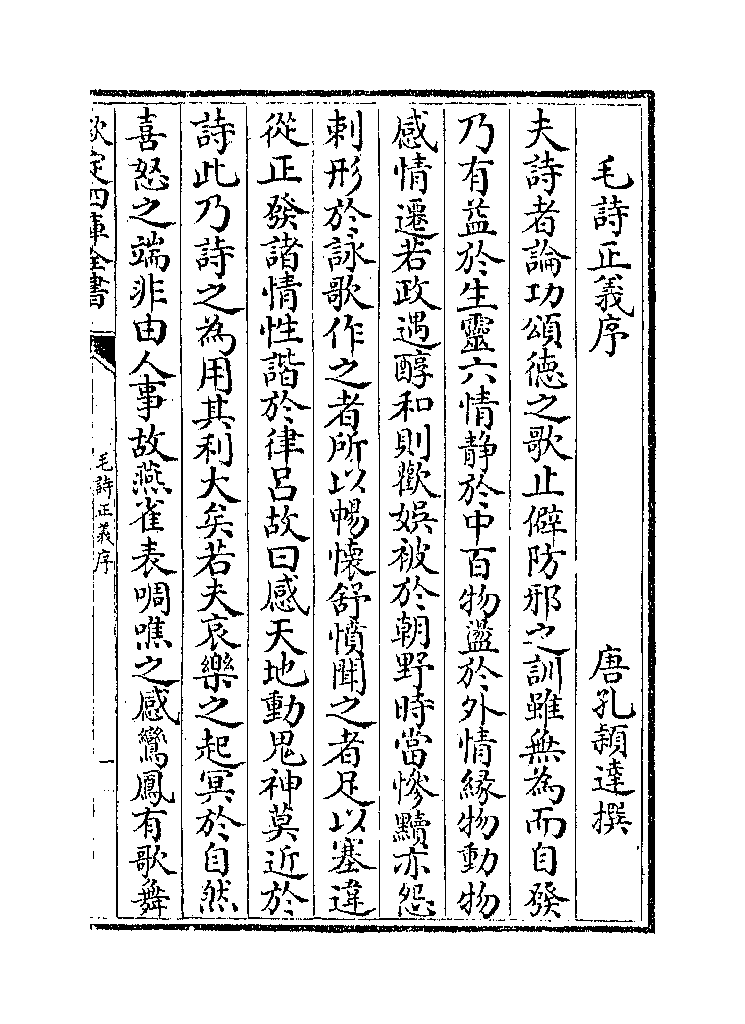 毛詩正義序 唐孔穎達撰
夫詩者論功頌德之歌止僻防邪之訓雖無為而自發
乃有益於生靈六情静於中百物盪於外情緣物動物
感情遷若政遇醇和則歡娛被於朝野時當慘黷亦怨
刺形於詠歌作之者所以暢懷舒憤聞之者足以塞違
從正發諸情性諧於律呂故曰感天地動鬼神莫近於
詩此乃詩之為用其利大矣若夫哀樂之起冥於自然
喜怒之端非由人事故燕雀表啁噍之感鸞鳳有歌舞
欽定四庫全書 毛詩正義序 一